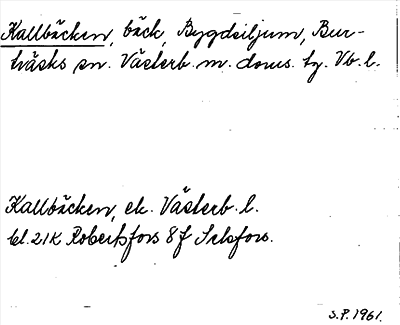 Kallbäcken, bäck, Bygdsiljum, Bur-
träsks sn. Västerb. m. doms. tg. Vb. l.
Kallbäcken, ek. Västerb. l.
bl. 21K Robertsfors 8f Selsfors.
S.P. 1961.